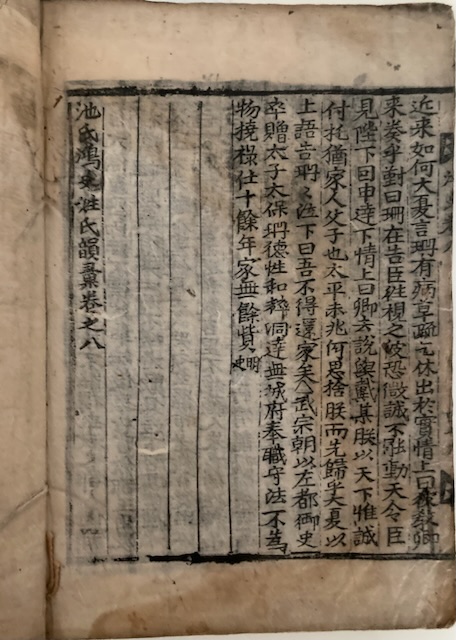 近来如何大夏言珊有病草疏乞休出於實情上曰彼教卿
来奏乎對曰珊在告臣往視之彼恐微誠不能動天令臣
見陛下曰申達下情上曰卿去說戴某朕以天下惟誠
付托猶家人父子也太平未兆何忍捨朕而先歸乎大夏以
上語告珊〻泣下曰吾不得還家矣武宗朝以左都御史
卒贈太子太保珊德性和粹洞達無城府奉職守法不為
物撓祿仕十餘年家無餘貲明史
池氏鴻史姓氏韻彙卷之八